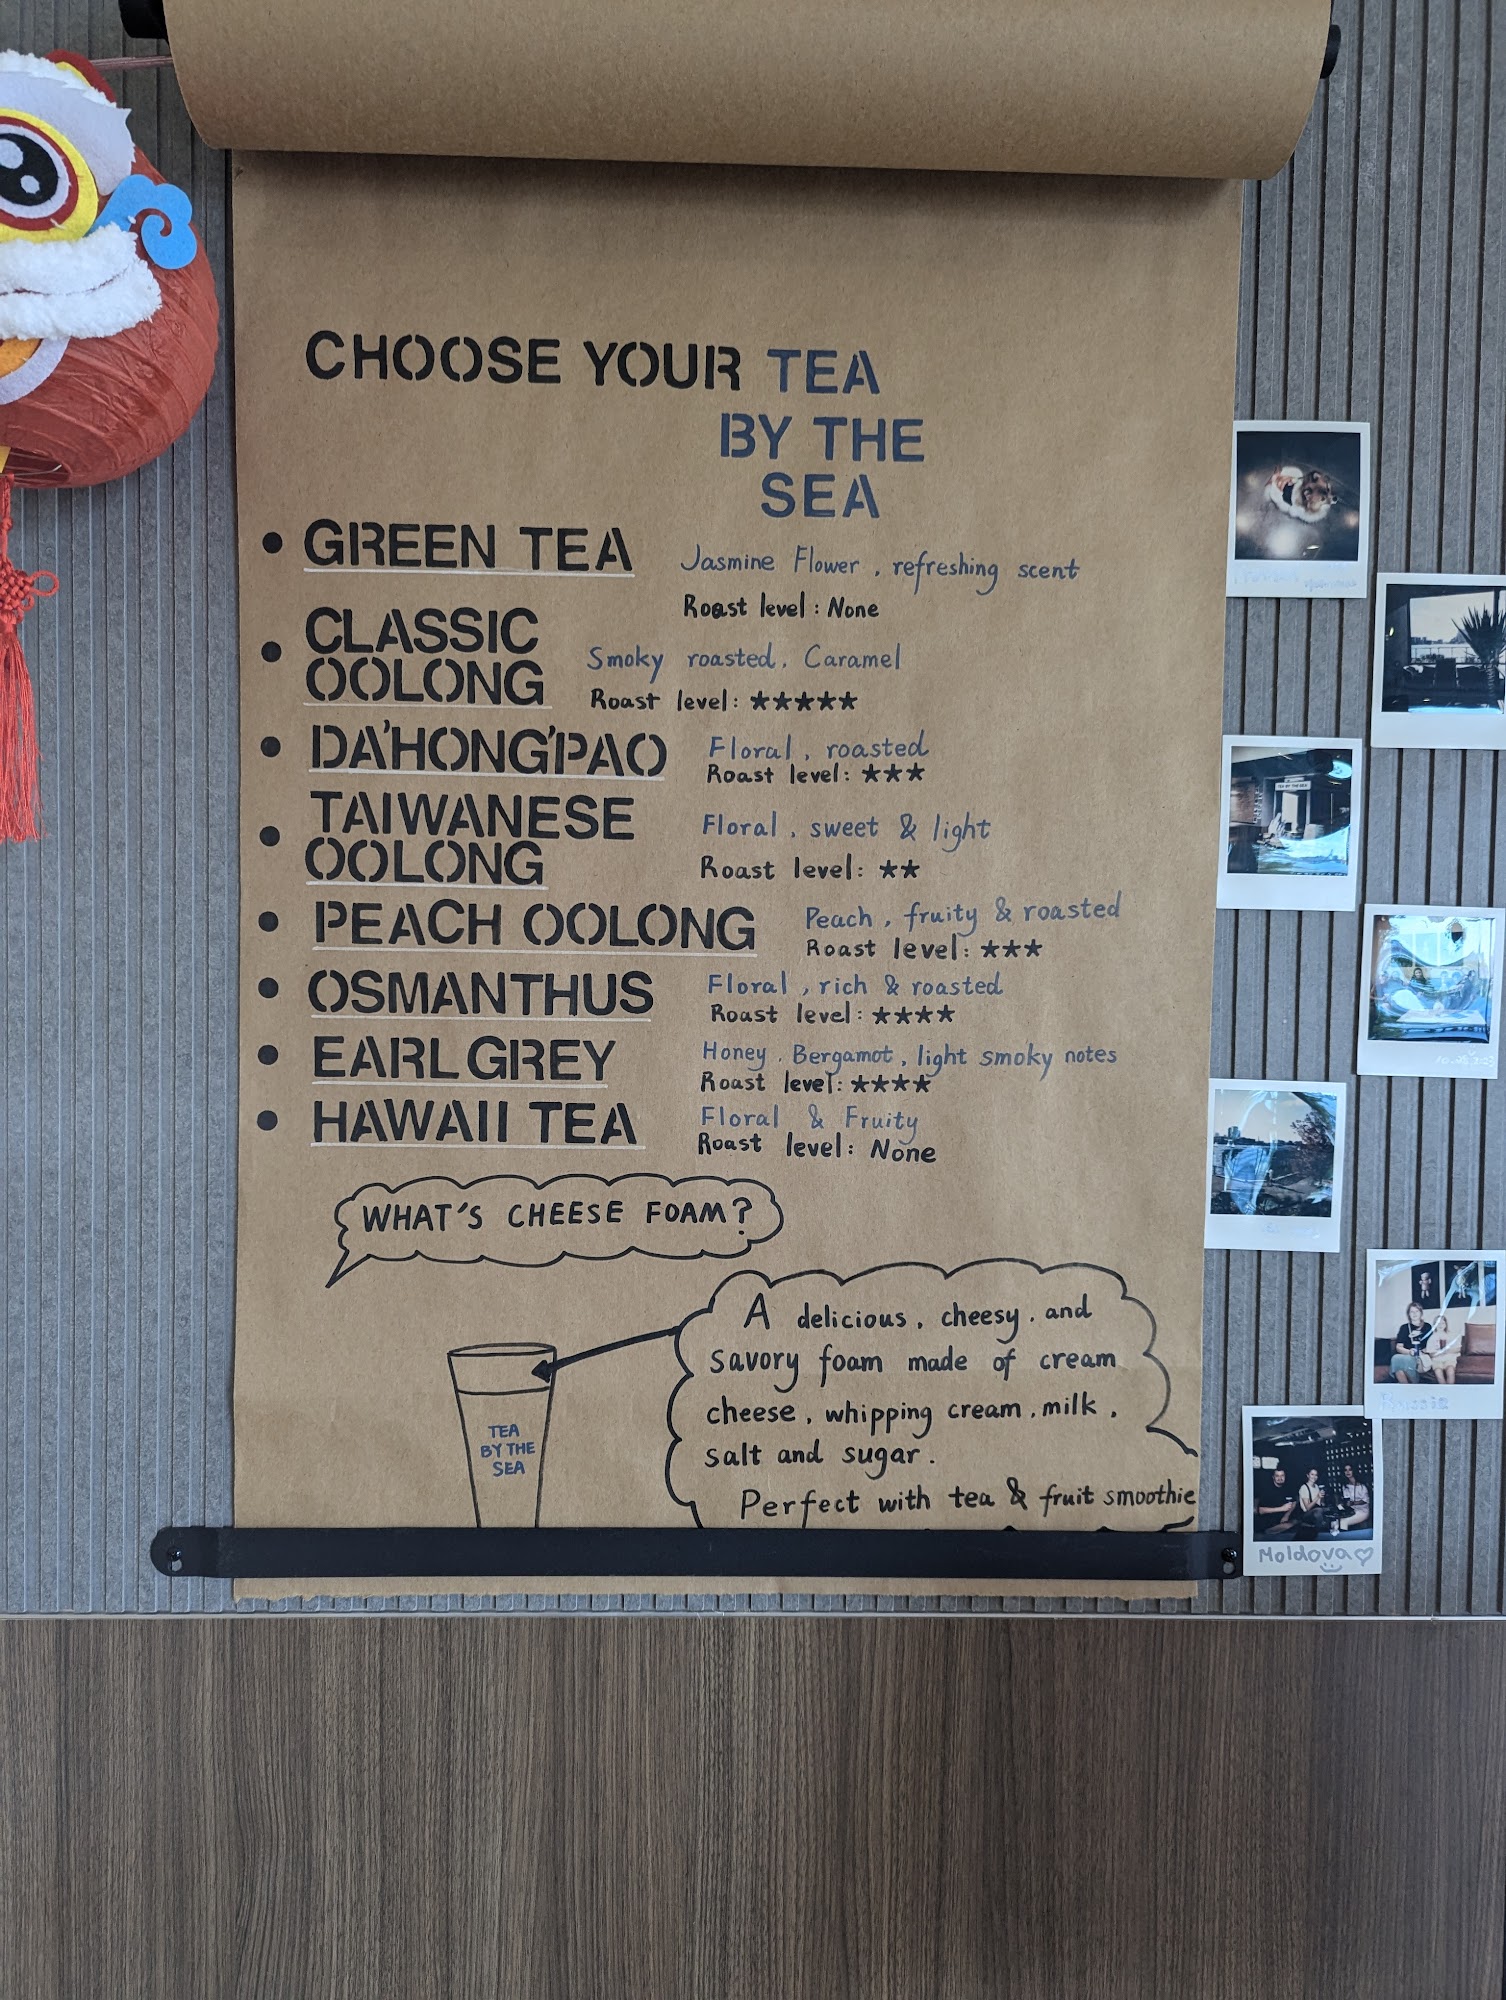 CHOOSE YOUR TEA
BY THE
SEA
• GREEN TEA
Jasmine Flower, refreshing scent
Roast level: None
• CLASSIC
OOLONG
Smoky roasted, Caramel
Roast level: ★★★★★
• DA'HONG'PAO
Floral, roasted
Roast level: ★★★
• TAIWANESE
OOLONG
Floral, sweet & light
Roast level: ★★
• PEACH OOLONG
Peach, fruity & roasted
Roast level: ★★★
• OSMANTHUS
Floral, rich & roasted
Roast level: ★★★★
• EARL GREY
Honey, Bergamot, light smoky notes
Roast level: ★★★★
• HAWAII TEA
Floral & Fruity
Roast level: None
WHAT'S CHEESE FOAM?
A delicious, cheesy, and
savory foam made of cream
cheese, whipping cream, milk,
salt and sugar.
Perfect with tea & fruit smoothie
TEA
BY THE
SEA
TEA BY THE SEA
Moldova